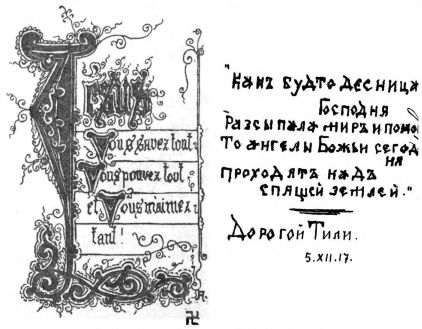 Jésus
Vous savez tout
Vous pouvez tout
et Vous m'aimez
tant!
"Какъ будто десница
Господня
Разсыпала миръ и помо
То ангелы Божьи сегод
ня
проходятъ надъ
спящей землей."
Дорогой Тили.
5.XII.17.